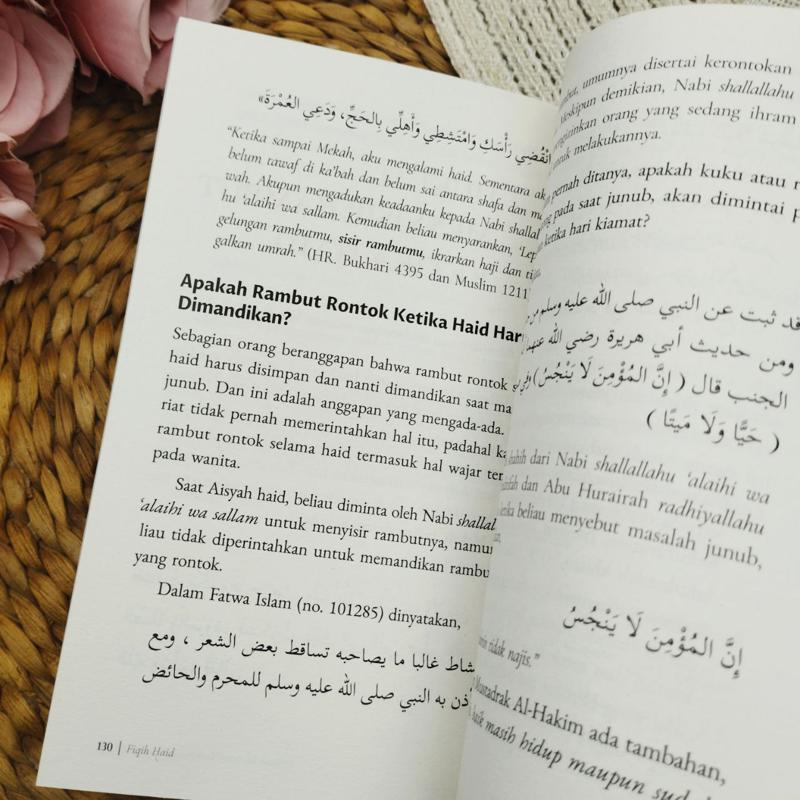 انْقُضِي رَأْسَكِ وَامْتَشِطِي وَأَهِلِّي بِالحَجِّ، وَدَعِي العُمْرَةَ»
“Ketika sampai Mekah, aku mengalami haid. Sementara ak
belum tawaf di ka’bah dan belum sai antara shafa dan m
wah. Akupun mengadukan keadaanku kepada Nabi shallal
hu ‘alaihi wa sallam. Kemudian beliau menyarankan, ‘Lep
gelungan rambutmu, sisir rambutmu, ikrarkan haji dan ti
galkan umrah.” (HR. Bukhari 4395 dan Muslim 1211)
Apakah Rambut Rontok Ketika Haid Har
Dimandikan?
Sebagian orang beranggapan bahwa rambut rontok
haid harus disimpan dan nanti dimandikan saat ma
junub. Dan ini adalah anggapan yang mengada-ada.
riat tidak pernah memerintahkan hal itu, padahal k
rambut rontok selama haid termasuk hal wajar ter
pada wanita.
Saat Aisyah haid, beliau diminta oleh Nabi shallal
‘alaihi wa sallam untuk menyisir rambutnya, namu
liau tidak diperintahkan untuk memandikan rambu
yang rontok.
Dalam Fatwa Islam (no. 101285) dinyatakan,
شاط غالبا ما يصاحبه تساقط بعض الشعر ، ومع
ذن به النبي صلى الله عليه وسلم للمحرم والحائض
130 | Fiqih Haid
umumnya disertai kerontokan
Meskipun demikian, Nabi shallallahu
orang yang sedang ihram
melakukannya.
pernah ditanya, apakah kuku atau r
pada saat junub, akan dimintai p
ketika hari kiamat?
قد ثبت عن النبي صلى الله عليه وسلم من
ومن حديث أبي هريرة رضي الله عنهما
الجنب قال ( إِنَّ المُؤْمِنَ لَا يَنْجُسُ) وفي
( حَيًّا وَلَا مَيتًا )
shahih dari Nabi shallallahu ‘alaihi wa
dan Abu Hurairah radhiyallahu
beliau menyebut masalah junub,
إِنَّ المُؤْمِنَ لَا يَنْجُسُ
tidak najis.”
Mustadrak Al-Hakim ada tambahan,
masih hidup maupun sud